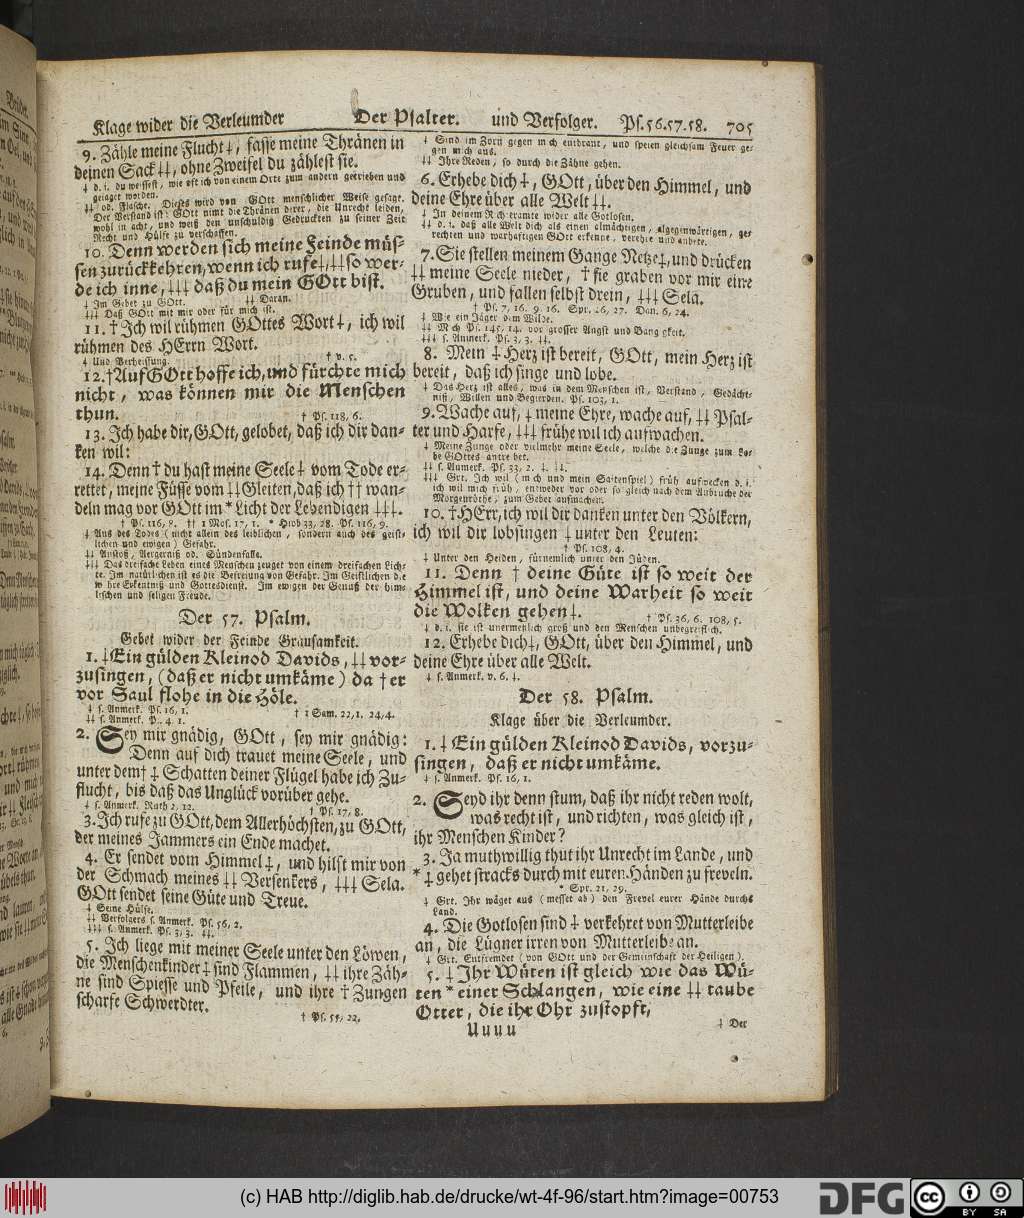 Klage wider die Verleumder Der Psalter. und Verfolger. Ps. 56. 57. 58. 705
9. Zähle meine Flucht‡, fasse meine Thränen in
deinen Sack‡‡, ohne Zweifel du zählest sie.
‡ d. i. du weissest, wie oft ich von einem Orte zum andern getrieben und
gejaget worden.
‡‡ od. Flasche. Dieses wird von GOtt menschlicher Weise gesagt.
Der Verstand ist: GOtt nimt die Thränen derer, die Unrecht leiden,
wohl in acht, und weiß den unschuldig Gedruckten zu seiner Zeit
Recht und Hülfe zu verschaffen.
10. Denn werden sich meine Feinde müs-
sen zurück kehren, wenn ich rufe‡, ‡‡ so wer-
de ich inne, ‡‡‡ daß du mein GOtt bist.
‡ Im Gebet zu GOtt. ‡‡ Daran.
‡‡‡ Daß GOtt mit mir oder für mich ist.
11. † Ich wil rühmen GOttes Wort‡, ich wil
rühmen des HErrn Wort.
‡ Und Verheissung. † v. 5.
12. † Auf GOtt hoffe ich, und fürchte mich
nicht, was können mir die Menschen
thun. † Ps. 118, 6.
13. Ich habe dir, GOtt, gelobet, daß ich dir dan-
ken wil:
14. Denn † du hast meine Seele‡ vom Tode er-
rettet, meine Füsse vom ‡‡ Gleiten, daß ich †† wan-
deln mag vor GOtt im * Licht der Lebendigen ‡‡‡.
† Ps. 116, 8. †† 1 Mos. 17, 1. * Hiob 33, 28. Ps. 116, 9.
‡ Aus des Todes (nicht allein des leiblichen, sondern auch des geist-
lichen und ewigen) Gefahr.
‡‡ Anstoß, Aergerniß od. Sündenfalle.
‡‡‡ Das dreifache Leben eines Menschen zeuget von einem dreifachen Lich-
te. Im natürlichen ist es die Befreiung von Gefahr. Im Geistlichen die
wahre Erkentniß und Gottesdienst. Im ewigen der Genuß der him-
lischen und seligen Freude.
Der 57. Psalm.
Gebet wider der Feinde Grausamkeit.
1. ‡ Ein gülden Kleinod Davids, ‡‡ vor-
zusingen, (daß er nicht umkäme) da † er
vor Saul flohe in die Höle.
‡ s. Anmerk. Ps. 16, 1. † 1 Sam. 22, 1. 24, 4.
‡‡ s. Anmerk. P.. 4. 1.
2. Sey mir gnädig, GOtt, sey mir gnädig:
Denn auf dich trauet meine Seele, und
unter dem† ‡ Schatten deiner Flügel habe ich Zu-
flucht, bis daß das Unglück vorüber gehe.
‡ s. Anmerk. Ruth 2, 12. † Ps. 17, 8.
3. Ich rufe zu GOtt, dem Allerhöchsten, zu GOtt,
der meines Jammers ein Ende machet.
4. Er sendet vom Himmel‡, und hilft mir von
der Schmach meines ‡‡ Versenkers, ‡‡‡ Sela.
GOtt sendet seine Güte und Treue.
‡ Seine Hülfe.
‡‡ Verfolgers s. Anmerk. Ps. 56, 2.
‡‡‡ s. Anmerk. P. 3, 3. ‡‡.
5. Ich liege mit meiner Seele unter den Löwen,
die Menschenkinder‡ sind Flammen, ‡‡ ihre Zäh-
ne sind Spiesse und Pfeile, und ihre † Zungen
scharfe Schwerdter.
† Ps. 55, 22.
‡ Sind im Zorn gegen mich entbrant, und speien gleichsam Feuer ge-
gen mich aus.
‡‡ Ihre Reden, so durch die Zähne gehen.
6. Erhebe dich‡, GOtt, über den Himmel, und
deine Ehre über alle Welt ‡‡.
‡ In deinem Richteramte wider alle Gotlosen.
‡‡ d. i. daß alle Welt dich als einen almächtigen, allgegenwärtigen, ge-
rechten und warhaftigen GOtt erkenne, verehre und anbete.
7. Sie stellen meinem Gange Netze‡, und drücken
‡‡ meine Seele nieder, † sie graben vor mir eine
Gruben, und fallen selbst drein, ‡‡‡ Sela.
† Ps. 7, 16. 9, 16. Spr. 26, 27. Dan. 6, 24.
‡ Wie ein Jäger dem Wilde.
‡‡ Mich Ps. 145, 14. vor grosser Angst und Bangigkeit.
‡‡‡ s. Anmerk. Ps. 3, 3. ‡‡.
8. Mein ‡ Herz ist bereit, GOtt, mein Herz ist
bereit, daß ich singe und lobe.
‡ Das Herz ist alles, was in dem Menschen ist, Verstand, Gedächt-
niß, Willen und Begierden. Ps. 103, 1.
9. Wache auf, ‡ meine Ehre, wache auf, ‡‡ Psal-
ter und Harfe, ‡‡‡ frühe wil ich aufwachen.
‡ Meine Zunge oder vielmehr meine Seele, welche die Zunge zum Lo-
be GOttes antreibet.
‡‡ s. Anmerk. Ps. 33, 2. ‡. ‡‡.
‡‡‡ Grt. Ich wil (mich und mein Saitenspiel) früh aufwecken d. i.
ich wil mich früh, entweder vor oder so gleich nach dem Anbruche der
Morgenröthe, zum Gebet aufmachen.
10. † HErr, ich wil dir danken unter den Völkern,
ich wil dir lobsingen ‡ unter den Leuten:
† Ps. 108, 4.
‡ Unter den Heiden, fürnemlich unter den Jüden.
11. Denn † deine Güte ist so weit der
Himmel ist, und deine Warheit so weit
die Wolken gehen‡. † Ps. 36, 6. 108, 5.
‡ d. i. sie ist unermeßlich groß und den Menschen unbegreiflich.
12. Erhebe dich‡, GOtt, über den Himmel, und
deine Ehre über alle Welt.
‡ s. Anmerk. v. 6. ‡.
Der 58. Psalm.
Klage über die Verleumder.
1. ‡ Ein gülden Kleinod Davids, vorzu-
singen, daß er nicht umkäme.
‡ s. Anmerk. Ps. 16, 1.
2. Seyd ihr denn stum, daß ihr nicht reden wolt,
was recht ist, und richten, was gleich ist,
ihr Menschen Kinder?
3. Ja muthwillig thut ihr Unrecht im Lande, und
* ‡ gehet stracks durch mit euren Händen zu freveln.
* Spr. 21, 29.
‡ Grt. Ihr wäget aus (messet ab) den Frevel eurer Hände durchs
Land.
4. Die Gotlosen sind ‡ verkehret von Mutterleibe
an, die Lügner irren von Mutterleibe an.
‡ Grt. Entfremdet (von GOtt und der Gemeinschaft der Heiligen).
5. ‡ Ihr Wüten ist gleich wie das Wü-
ten * einer Schlangen, wie eine ‡‡ taube
Otter, die ihr Ohr zustopft,
Uuuu ‡ Der
(c) HAB http://diglib.hab.de/drucke/wt-4f-96/start.htm?image=00753
DFG
cc BY SA